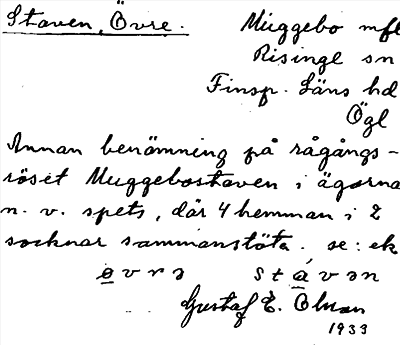 Staven, Övre. Muggebo mfl
Risinge sn
Finsp. Läns hd
Ögl
Annan benämning på rågångs-
röset Muggebostaven i ägorna
n. v. spets, där 4 hemman i 2
socknar sammanstöta. se: ek
ø̱vrə stá̱vən
Gustaf E. Olsson
1933